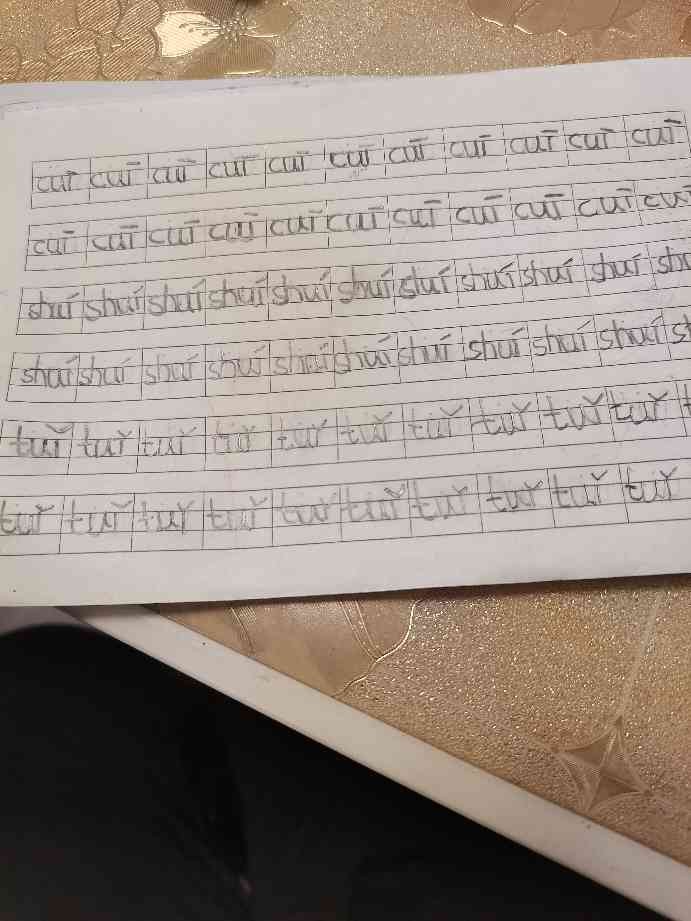 cuī cuī cuī cuī cuī cuī cuī cuī cuī cuī cuī
cuī cuī cuī cuī cuī cuī cuī cuī cuī cuī cuī
shuí shuí shuí shuí shuí shuí shuí shuí shuí shuí
shuí shuí shuí shuí shuí shuí shuí shuí shuí shuí
tuǐ tuǐ tuǐ tuǐ tuǐ tuǐ tuǐ tuǐ tuǐ tuǐ
tuǐ tuǐ tuǐ tuǐ tuǐ tuǐ tuǐ tuǐ tuǐ tuǐ